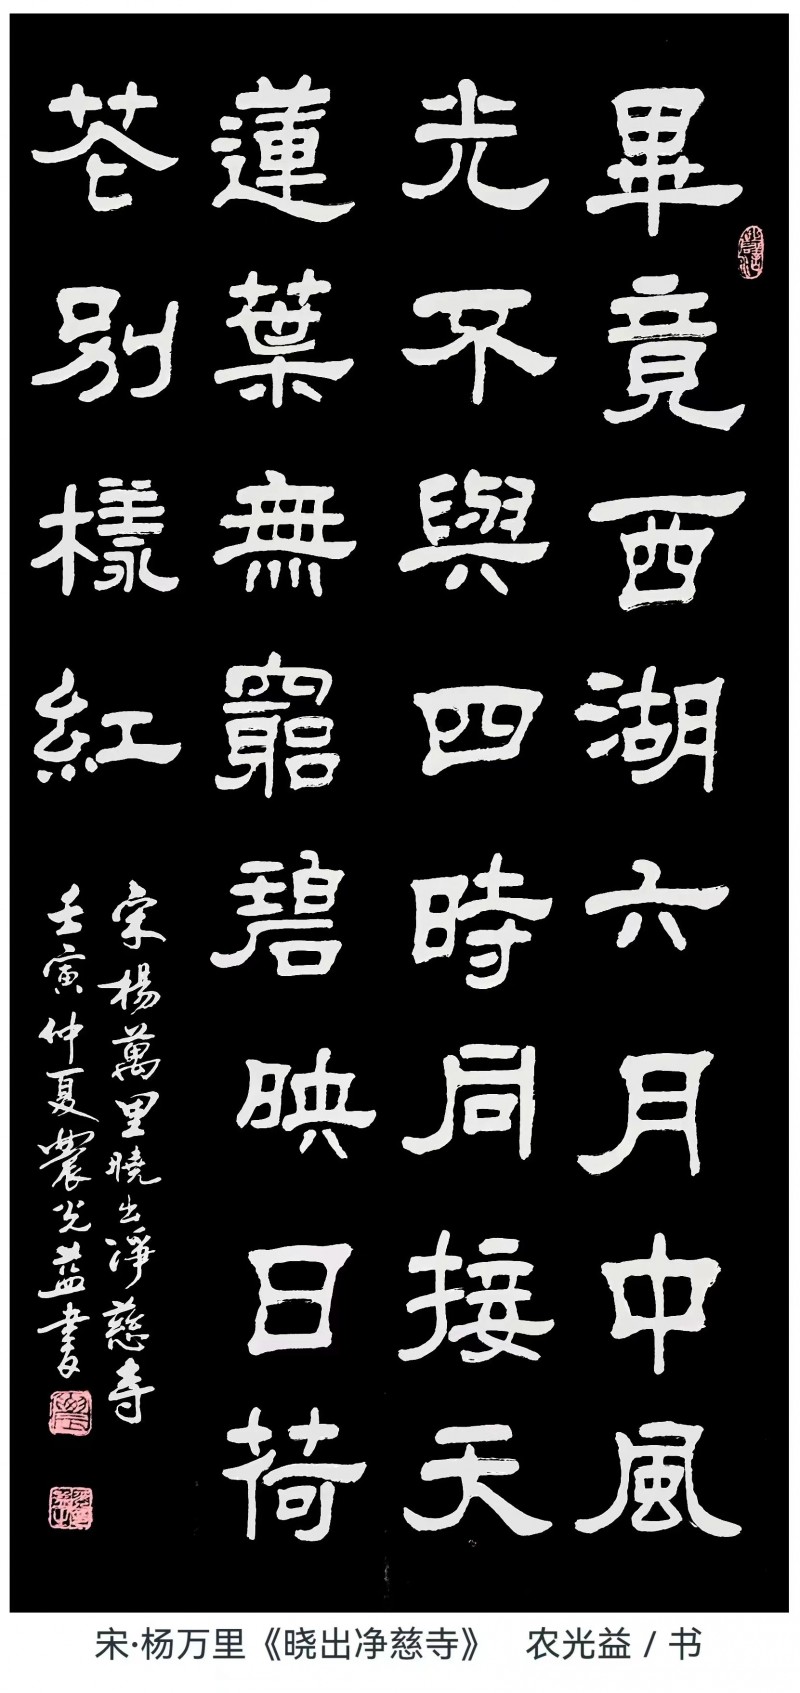 畢竟西湖六月中風
光不與四時同接天
蓮葉無窮碧映日荷
花別樣紅
宋楊萬里曉出淨慈寺
壬寅仲夏農光益書
宋·杨万里《晓出净慈寺》 农光益 / 书